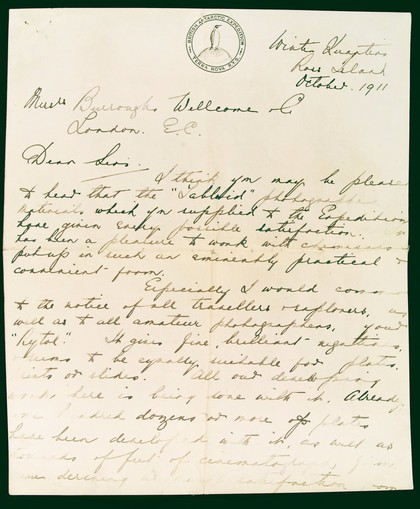 BRITISH ANTARCTIC EXPEDITION
TERRA NOVA R.Y.S.
Winter Quarters
Ross Island
October. 1911
Burroughs Wellcome & Co
London. E.C.
Dear Sirs.
I think you may be pleased
to hear that the "Tabloid" photographic
materials which you supplied to the Expedition
have given every possible satisfaction.
has been a pleasure to work with chemicals
put up in such an eminently practical &
convenient form.
Especially I would
to the notice of all travellers & explorers, as
well as to all amateur photographers, your
"Rytol". It gives fine, brilliant negatives,
seems to be equally suitable for plates,
prints or slides. All our developing
work here is being done with it. Already
one hundred dozens or more of plates
have been developed with it as well as
of feet of cinematograph
satisfaction from